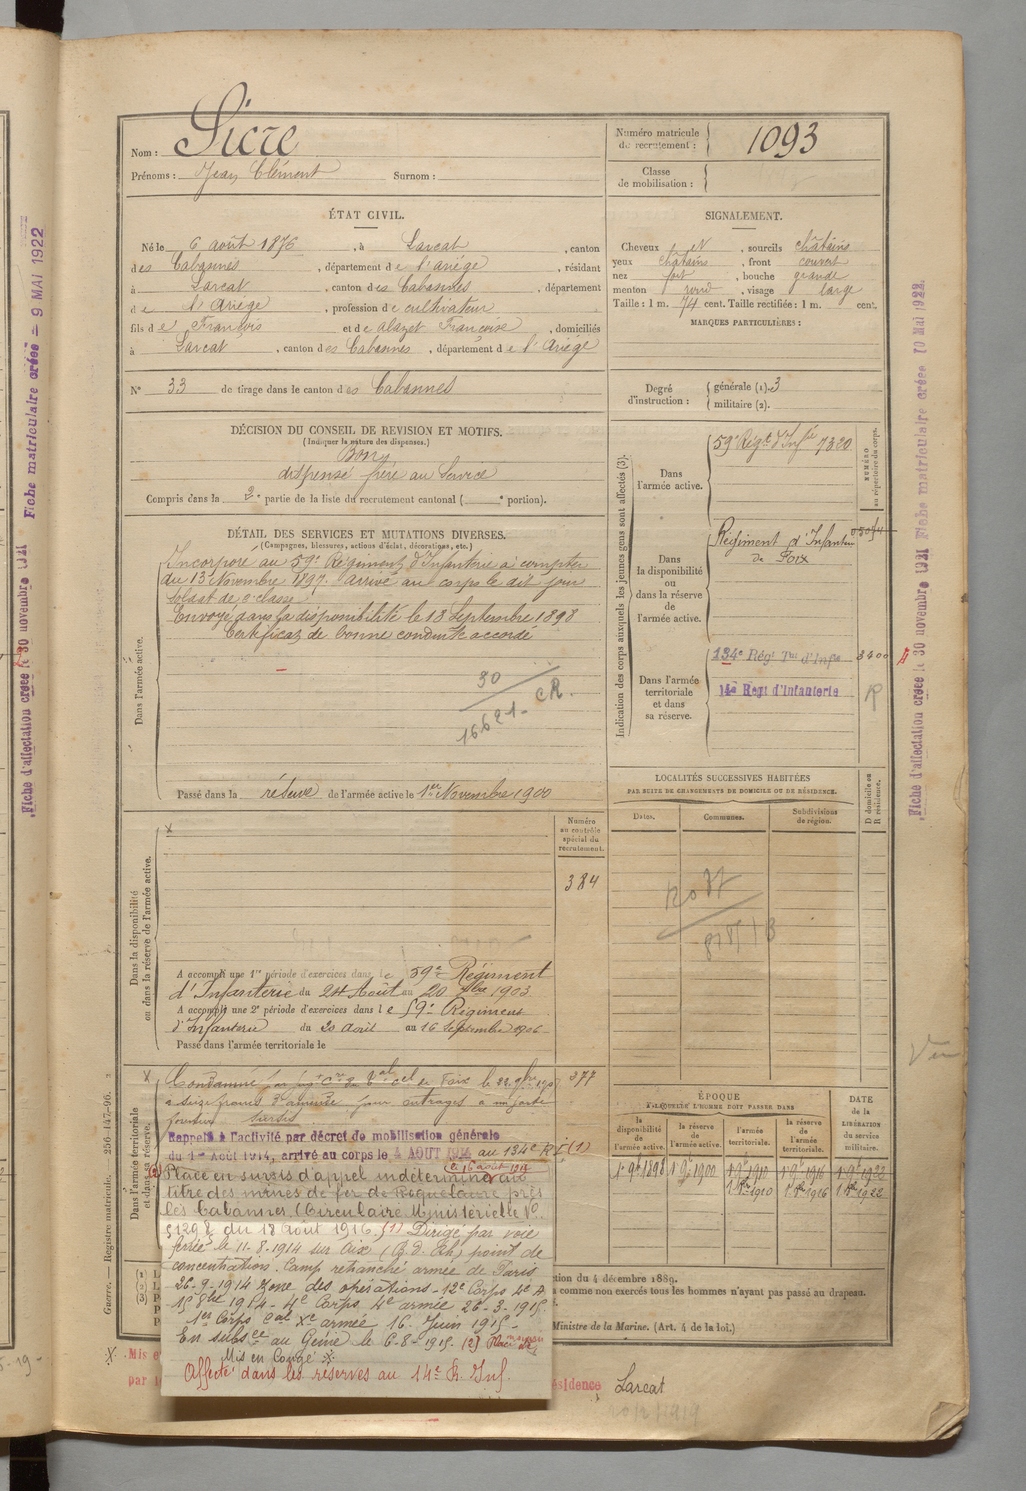 Nom : Sicre
Prénoms : Jean Clément Surnom :
Numéro matricule de recrutement : 1093
Classe de mobilisation :
ÉTAT CIVIL.
Né le 6 août 1876, à Larcat, canton
des Cabannes, département de l'Ariége, résidant
à Larcat, canton des Cabannes, département
de l'Ariége, profession de cultivateur
fils de François et de alazet Françoise, domiciliés
à Larcat, canton des Cabannes, département de l'Ariége
SIGNALEMENT.
Cheveux et, sourcils châtains
yeux châtains, front couvert
nez fort, bouche grande
menton rond, visage large
Taille : 1 m. 74 cent. Taille rectifiée : 1 m. cent.
MARQUES PARTICULIÈRES :
N° 33 de tirage dans le canton des Cabannes
Degré d'instruction : générale (1). 3
militaire (2).
DÉCISION DU CONSEIL DE REVISION ET MOTIFS.
(Indiquer la nature des dispenses.)
Bon
dispensé frère au Service
Compris dans la 2e partie de la liste du recrutement cantonal ( e portion).
DÉTAIL DES SERVICES ET MUTATIONS DIVERSES.
(Campagnes, blessures, actions d'éclat, décorations, etc.)
Dans l'armée active.
Incorporé au 59e Régiment d'Infanterie à compter
du 13 Novembre 1897. arrivé au corps le dit jour
soldat de 2e classe
Envoyé dans la disponibilité le 18 Septembre 1898
Certificat de bonne conduite accordé
30
16621.
CR.
Passé dans la réserve de l'armée active le 1er Novembre 1900
Indication des corps auxquels les jeunes gens sont affectés (3).
Dans l'armée active.
59e Régt d'Infie 7320
NUMÉRO au répertoire du corps.
Dans la disponibilité ou dans la réserve de l'armée active.
Régiment d'Infanterie
de Foix
Dans l'armée territoriale et dans sa réserve.
134e Régt Tal d'Infie 3400
14e Regt d'Infanterie
R
LOCALITÉS SUCCESSIVES HABITÉES
PAR SUITE DE CHANGEMENTS DE DOMICILE OU DE RÉSIDENCE.
D domicile ou R résidence.
Dates. Communes. Subdivisions de région.
Dans la disponibilité ou dans la réserve de l'armée active.
Numéro au contrôle spécial du recrutement.
384
A accompli une 1re période d'exercices dans le 59e Régiment
d'Infanterie du 24 Août au 20 7bre 1903
A accompli une 2e période d'exercices dans le 59e Régiment
d'Infanterie du 20 août au 16 Septembre 1906
Passé dans l'armée territoriale le
377
Dans l'armée territoriale et dans sa réserve.
Rappelé à l'activité par décret de mobilisation générale
du 1er Août 1914, arrivé au corps le 4 AOUT 1914 au 134e R.I. (1)
(2) Placé en sursis d'appel indéterminé au
titre des mines de fer de Roquelaure près
les Cabannes (Circulaire Ministérielle No
51298 du 18 Août 1916. (1) Dirigé par voie
ferrée le 11-8-1914 sur Aix (B. d. Rh) point de
concentration. Camp retranché armée de Paris
26-9-1914 Zone des opérations - 12e Corps 4e A
15 8bre 1914 - 4e Corps 4e armée 26-3-1915
1er Corps Cal Xe armée 16 Juin 1915 -
En subsce au Génie le 6-8-1915. (2)
Mis en Congé X.
Affecté dans les réserves au 14e R. Inf.
ÉPOQUE
À LAQUELLE L'HOMME DOIT PASSER DANS
la disponibilité de l'armée active.
la réserve de l'armée active.
l'armée territoriale.
la réserve de l'armée territoriale.
DATE de la LIBÉRATION du service militaire.
1er 9bre 1898 1er 9bre 1900 1er 9bre 1910 1er 9bre 1916 1er 9bre 1922
1er 8bre 1910 1er 8bre 1916 1er 8bre 1922
tion du 4 décembre 1889.
s comme non exercés tous les hommes n'ayant pas passé au drapeau.
Ministre de la Marine. (Art. 4 de la loi.)
X Mis e
par
ésidence Larcat
Guerre. — Registre matricule. — 256-147-96.
Fiche d'affectation créée le 30 novembre 1921 Fiche matriculaire créée = 9 MAI 1922
Fiche d'affectation créée le 30 novembre 1921 Fiche matriculaire créée 10 MAI 1922.
Vu